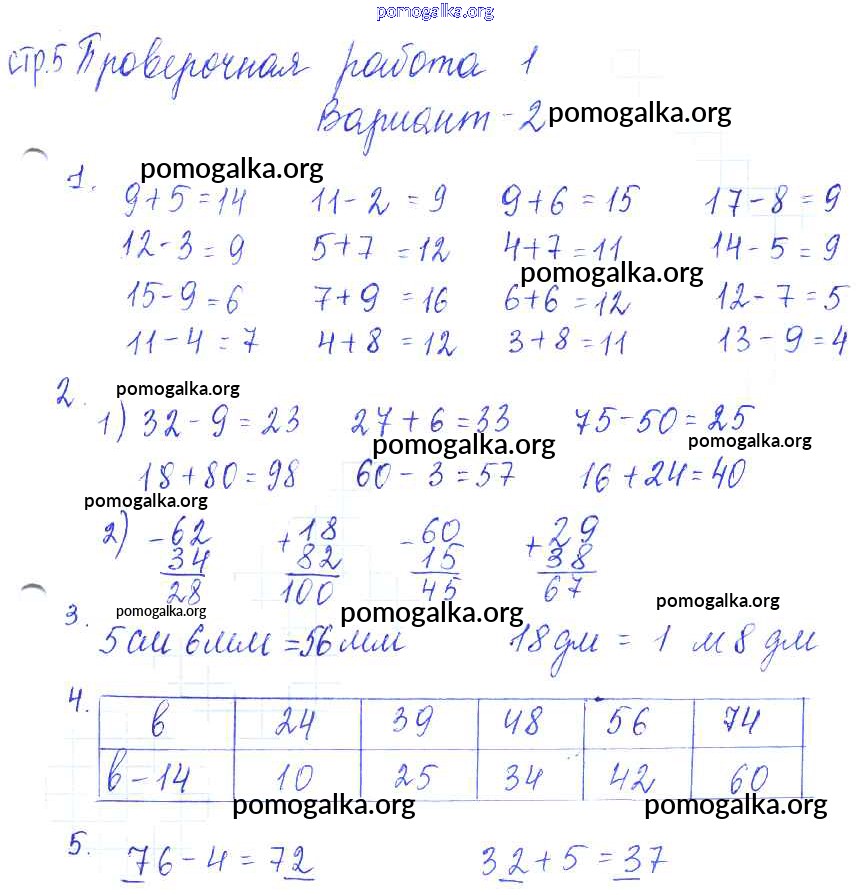 pomogalka.org
стр.5 Проверочная работа 1
Вариант - 2 pomogalka.org
pomogalka.org
1.
9+5=14 11-2=9 9+6=15 17-8=9
12-3=9 5+7=12 4+7=11 14-5=9
pomogalka.org
15-9=6 7+9=16 6+6=12 12-7=5
11-4=7 4+8=12 3+8=11 13-9=4
2. pomogalka.org
1) 32-9=23 27+6=33 75-50=25
pomogalka.org pomogalka.org
18+80=98 60-3=57 16+24=40
pomogalka.org
2) -62 +18 -60 +29
34 82 15 38
28 100 45 67
3. pomogalka.org pomogalka.org pomogalka.org
5 см 6 мм = 56 мм 18 дм = 1 м 8 дм
4.
в 24 39 48 56 74
в-14 10 25 34 42 60
pomogalka.org pomogalka.org
5.
76-4=72 32+5=37